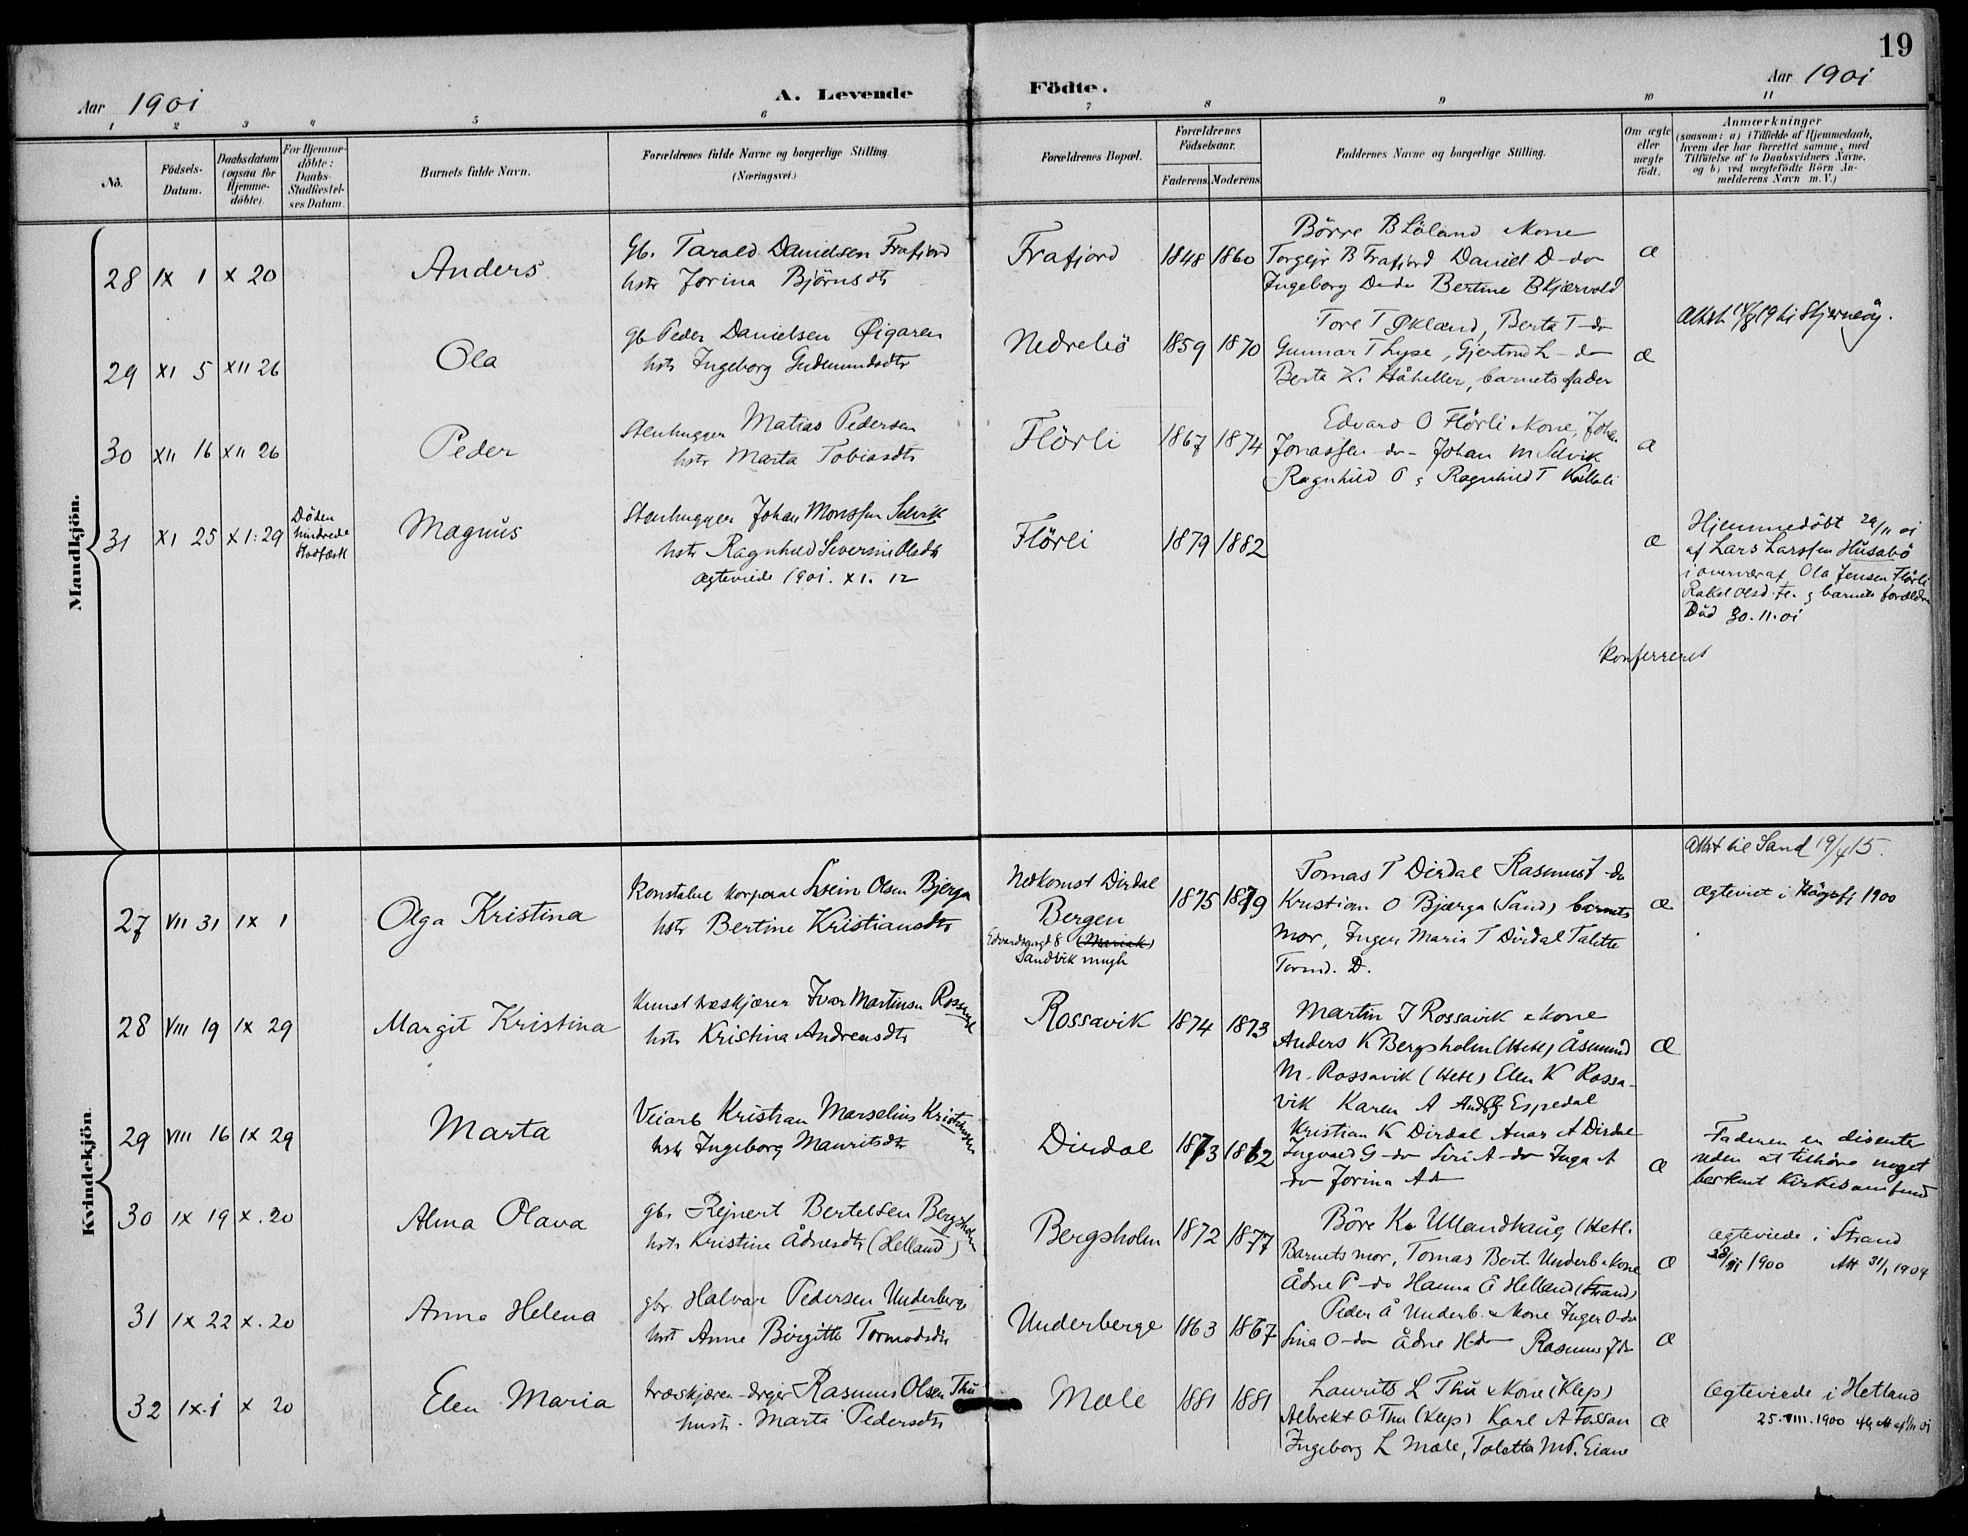 19
Aar 1901 A. Levende Födte. Aar 1901
1 2 3 4 5 6 7 8 9 10 11
No.
Födsels-Datum.
Daabsdatum (ogsaa for Hjemme-döbte).
For Hjemme-döbte: Daabs-Stadfæstel-ses Datum.
Barnets fulde Navn.
Forældrenes fulde Navne og borgerlige Stilling. (Næringsvei.)
Forældrenes Bopæl.
Forældrenes Födselsaar.
Faderens. Moderens.
Faddernes Navne og borgerlige Stilling.
Om ægte eller uægte födt.
Anmærkninger
(saasom: a) i Tilfælde af Hjemmedaab,
hvem der har forrettet samme, med
Tilföielse af to Daabsvidners Navne,
og b) ved uægtefödte Börn An-
melderens Navn m. V.)
Mandkjön.
28 IX 1 X 20 Anders
Gb. Tarald Danielsen Frafjord
hstr Jorina Bjørnsdtr
Frafjord 1848 1860
Börre B Löland & kone
Torgejr B Frafjord Daniel D - do
Ingeborg D-do Bertine B Kjærvold
æ
29 XI 5 XII 26 Ola
gb Peder Danielsen Øigaren
hstr Ingeborg Gudmundsdtr
Nedrebö 1859 1870
Tore T Økland, Berta T - do
Gunnar T Lyse, Gjertrud L - do
Berta K. Håheller, barnets fader
æ
30 XII 16 XII 26 Peder
Stenhugger Matias Pedersen
hstr Marta Tobiasdtr
Flörli 1867 1874
Edvard O Flörli & kone, Johan
Jonassen - do - Johan M Selvik
Ragnhild O & Ragnhild T Kallali
æ
31 XI 25 XI: 29
Döden
hindrede
Stadfæst
Magnus
Stenhugger Johan Monssen Selvik
hstr Ragnhild Severine Olsdtr
Ægteviede 1901. XI. 12
Flörli 1879 1882
æ
Hjemmedöbt 29/11 01
af Lars Larssen Husabö
i overvær af Ola Jensen Flörli
Rakel Olsd. Fl. & barnets forældre
Död 30. 11. 01
konferreret
Kvindekjön.
27 VII 31 IX 1 Olga Kristina
Konstabel korporal Svein Olsen Bjerga
hstr Bertine Kristiansdtr
Nedkomst Dirdal
Bergen
8
Sandvik
1875 1879
Tomas T Dirdal Rasmus T - do
Kristian O Bjærga (Sand) barnets
Mor, Inger Maria T Dirdal Talette
Tormd. D.
æ
Attst til Sand 19/4 15.
Ægteviet i 1900
28 VIII 19 IX 29 Margit Kristina
Kunst træskjærer Ivar Martinsen Rossavik
hstr Kristina Andreasdtr
Rossavik 1874 1873
Martin I Rossavik & kone
Anders K Bergsholm (Hetl) Åsmund
M. Rossavik (Hetl) Elen K Rossa-
vik Karen A Espedal
Æ
29 VIII 16 IX 29 Marta
Veiarb Kristian Marselius Kristensen
hstr Ingeborg Mauritsdtr
Dirdal 1873 1862
Kristian K Dirdal A Dirdal
Ingvald G - do Siri A - do Inga A
do Jorina A do
æ
Faderen er disenter
uden at tilhöre noget
bestemt Kirkesamfund
30 IX 19 X. 20 Alma Olava
gbr Rejnert Bertelsen Bergsholm
hstr Kristine Ådnesdtr (Helland)
Bergsholm 1872 1877
Böre K Ullandhaug (Hetl.
Barnets mor, Tomas Bert. Underb & kone
Ådne P - do Hanna Å Helland (Strand)
æ
Ægteviede i Strand
1900 Att 31/1 1904
31 IX 22 X. 20 Anna Helena
gbr. Halvar Pedersen Underberge
hstr Anne Birgitte Tormodsdtr
Underberge 1863 1867
Peder Å Underb. & kone Inger O - do
Sina O - do Ådne H - do Rasmus J do
Æ
32 IX. 1 X 20 Elen Maria
træskjærer - drejer Rasmus Olsen Thu
hustr. Marta Pedersdtr
Mæle 1881 1881
Laurits L Thu & kone (Klep)
Albrekt O Thu (Klep) Karl A Fossan
Ingeborg L Mæle, Taletta Eiane
Æ
Ægteviede i Hetland
25. VIII. 1900